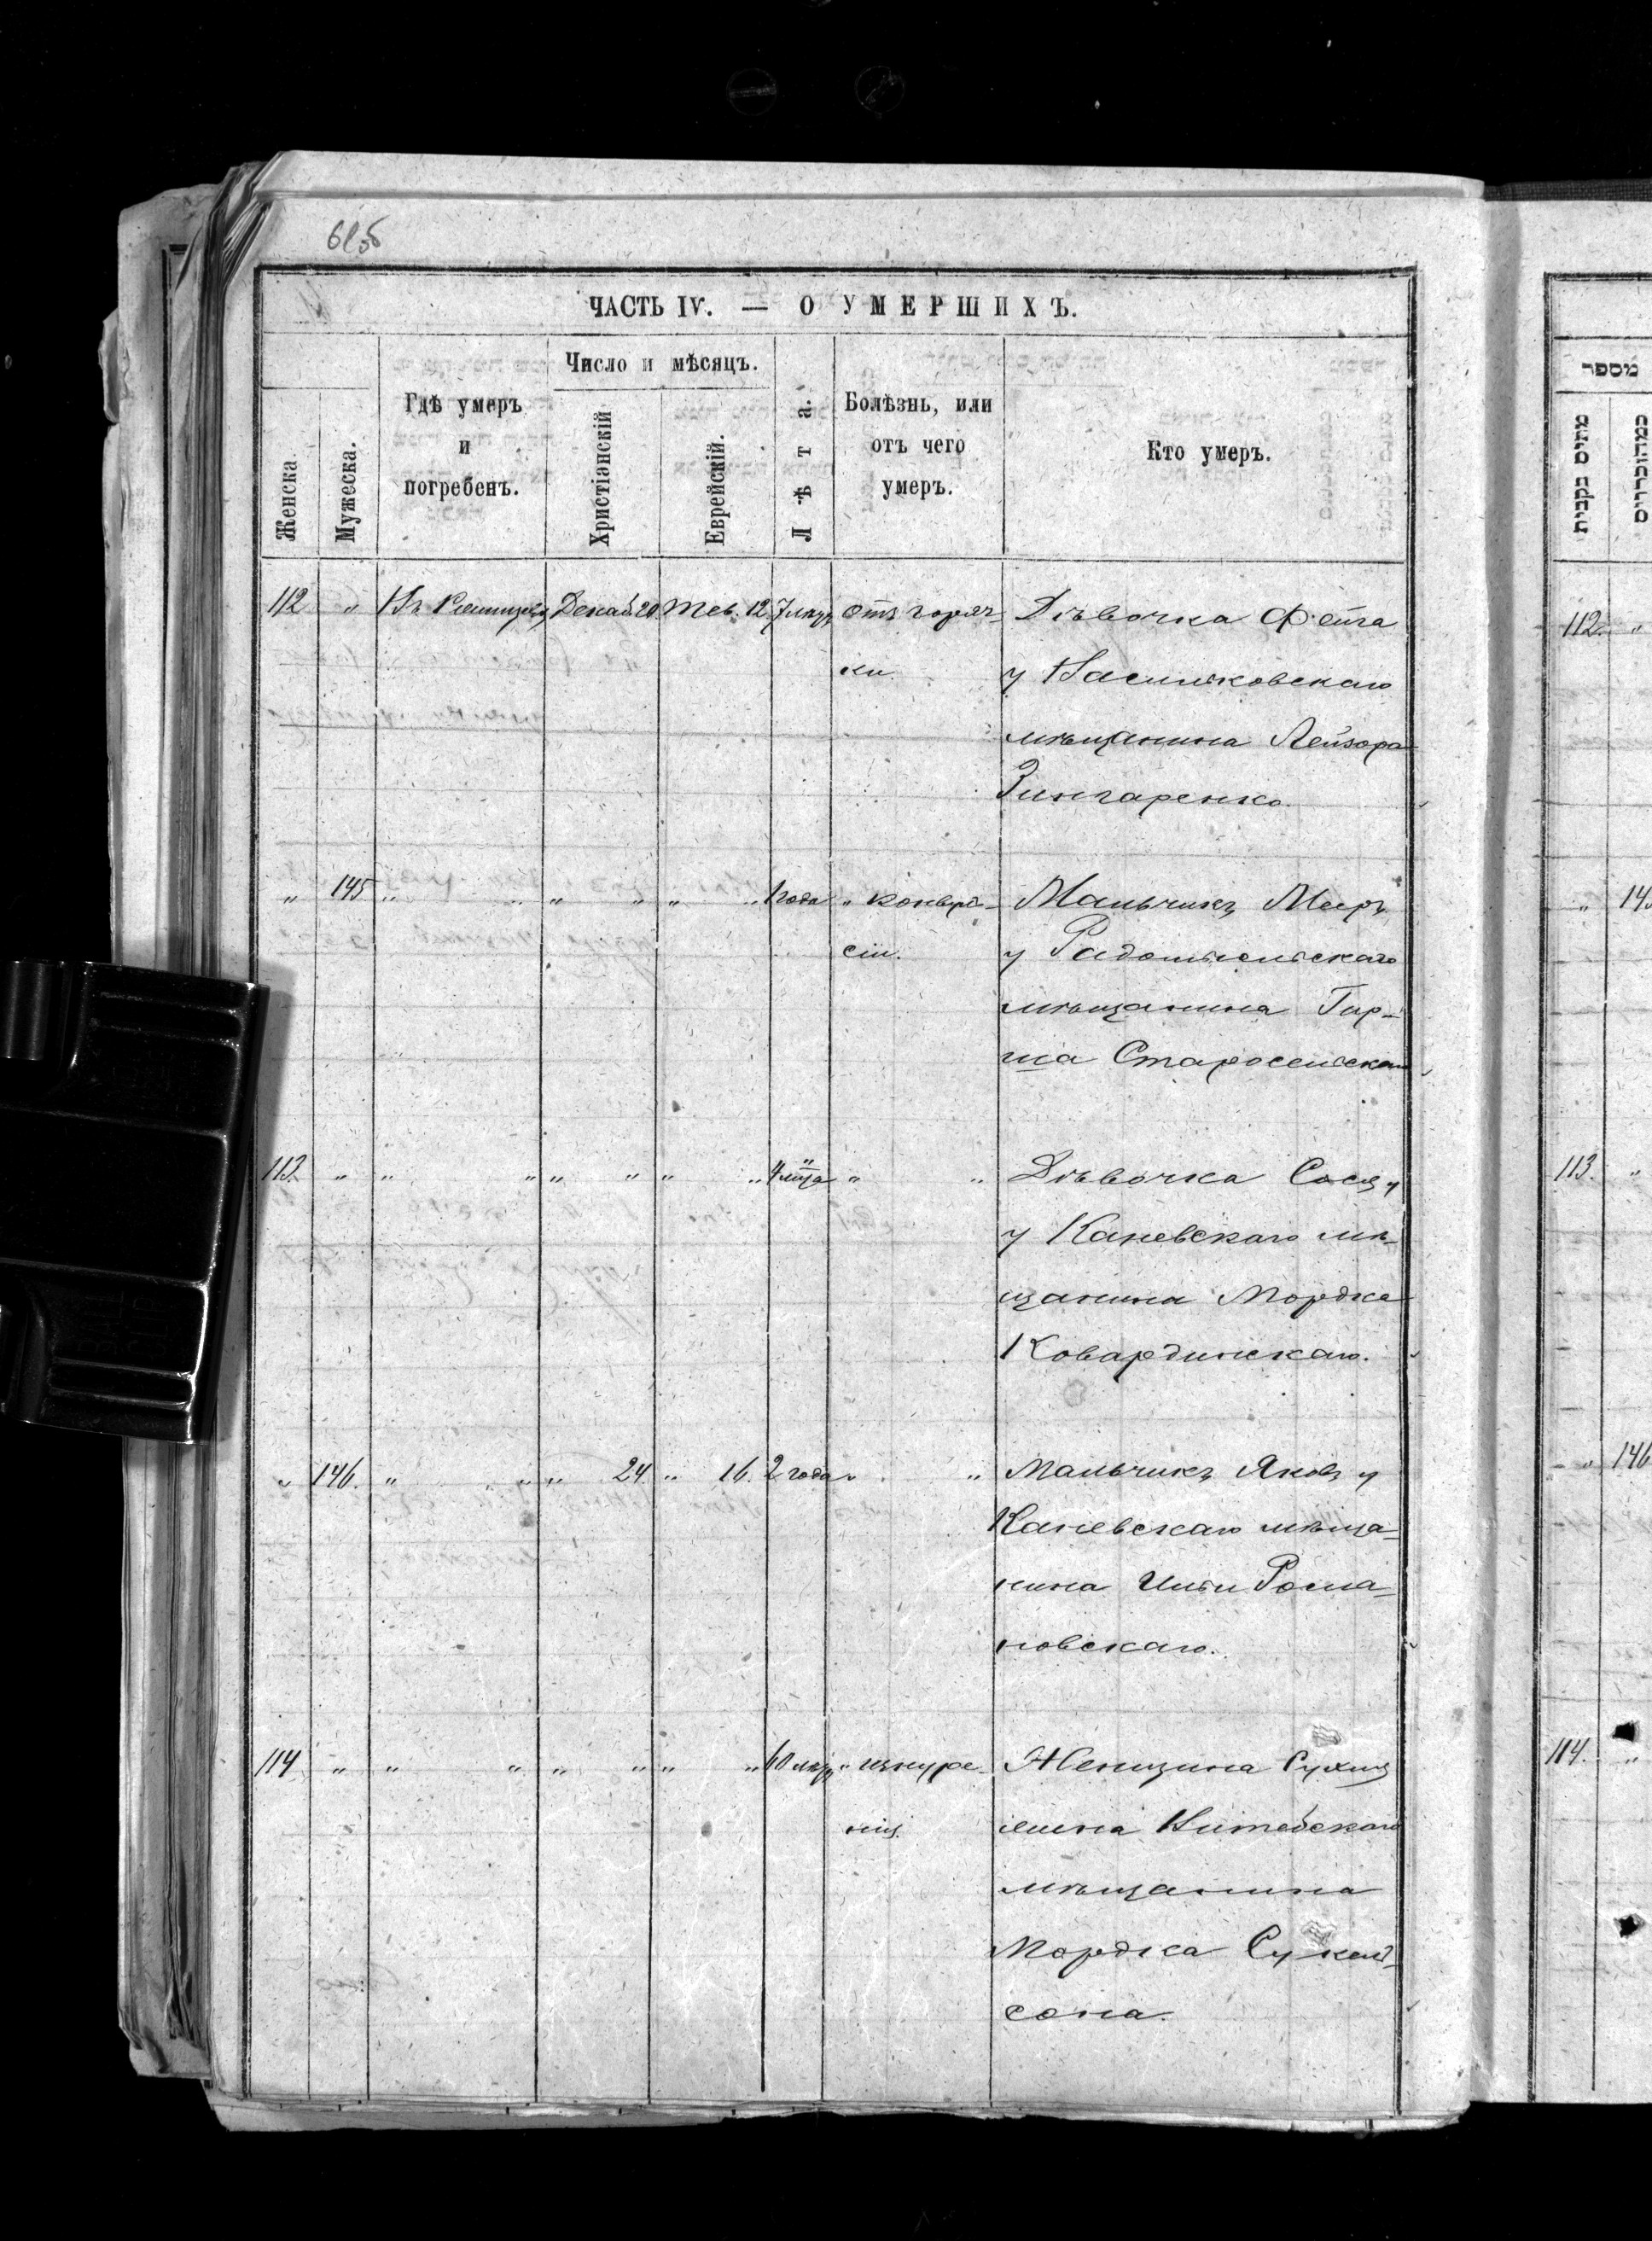 ЧАСТЬ IV. — О УМЕРШИХЪ.
Женска.
Мужеска.
Гдѣ умеръ
и
погребенъ.
Число и мѣсяцъ.
Христіанскій
Еврейскій.
Лѣта.
Болѣзнь, или
отъ чего
умеръ.
Кто умеръ.
מספר
מתים נקבות
112 " Въ Декаб. 20. Тев. 12. 7 лѣтъ отъ горяч- Дѣвочка Фейга
ки. у Васильковскаго
мѣщанина Лейзора
Зингаренко.
" 145 " " " " " " 1 года " конвуль- Мальчикъ Мееръ
сіи. у Радомысльскаго
мѣщанина Гер-
ша Старосельскаго
113. " " " " " " " 4 м-ца " " Дѣвочка Сося
у Каневскаго мѣ-
щанина Мордка
Ковардинскаго.
" 146. " " " 24. " 16. 2 года " " Мальчикъ Яковъ у
Каневскаго мѣща-
нина Рома-
новскаго.
114 " " " " " " " 60 лѣтъ " изнуре- Женщина
нія. жена Витебскаго
мѣщанина
Мордка
сона.
112. "
" 145
113. "
" 146
114. "